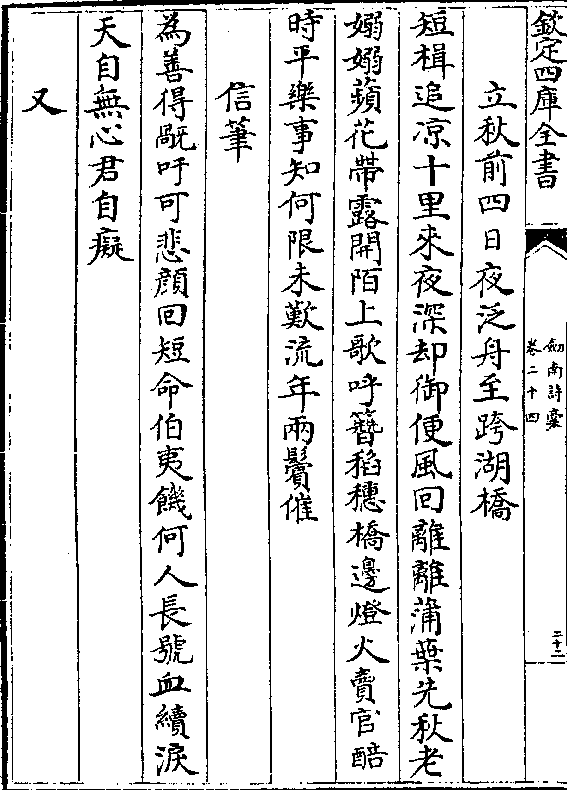 欽定四庫全書
劒南詩稾
卷二十四
二十二
立秋前四日夜泛舟至跨湖橋
短楫追凉十里來夜深却御便風回離離蒲葉先秋老
嫋嫋蘋花帶露開陌上歌呼簪稻穗橋邊燈火賣官醅
時平樂事知何限未歎流年兩鬢催
信筆
為善得戹吁可悲顔回短命伯夷饑何人長號血續淚
天自無心君自癡
又